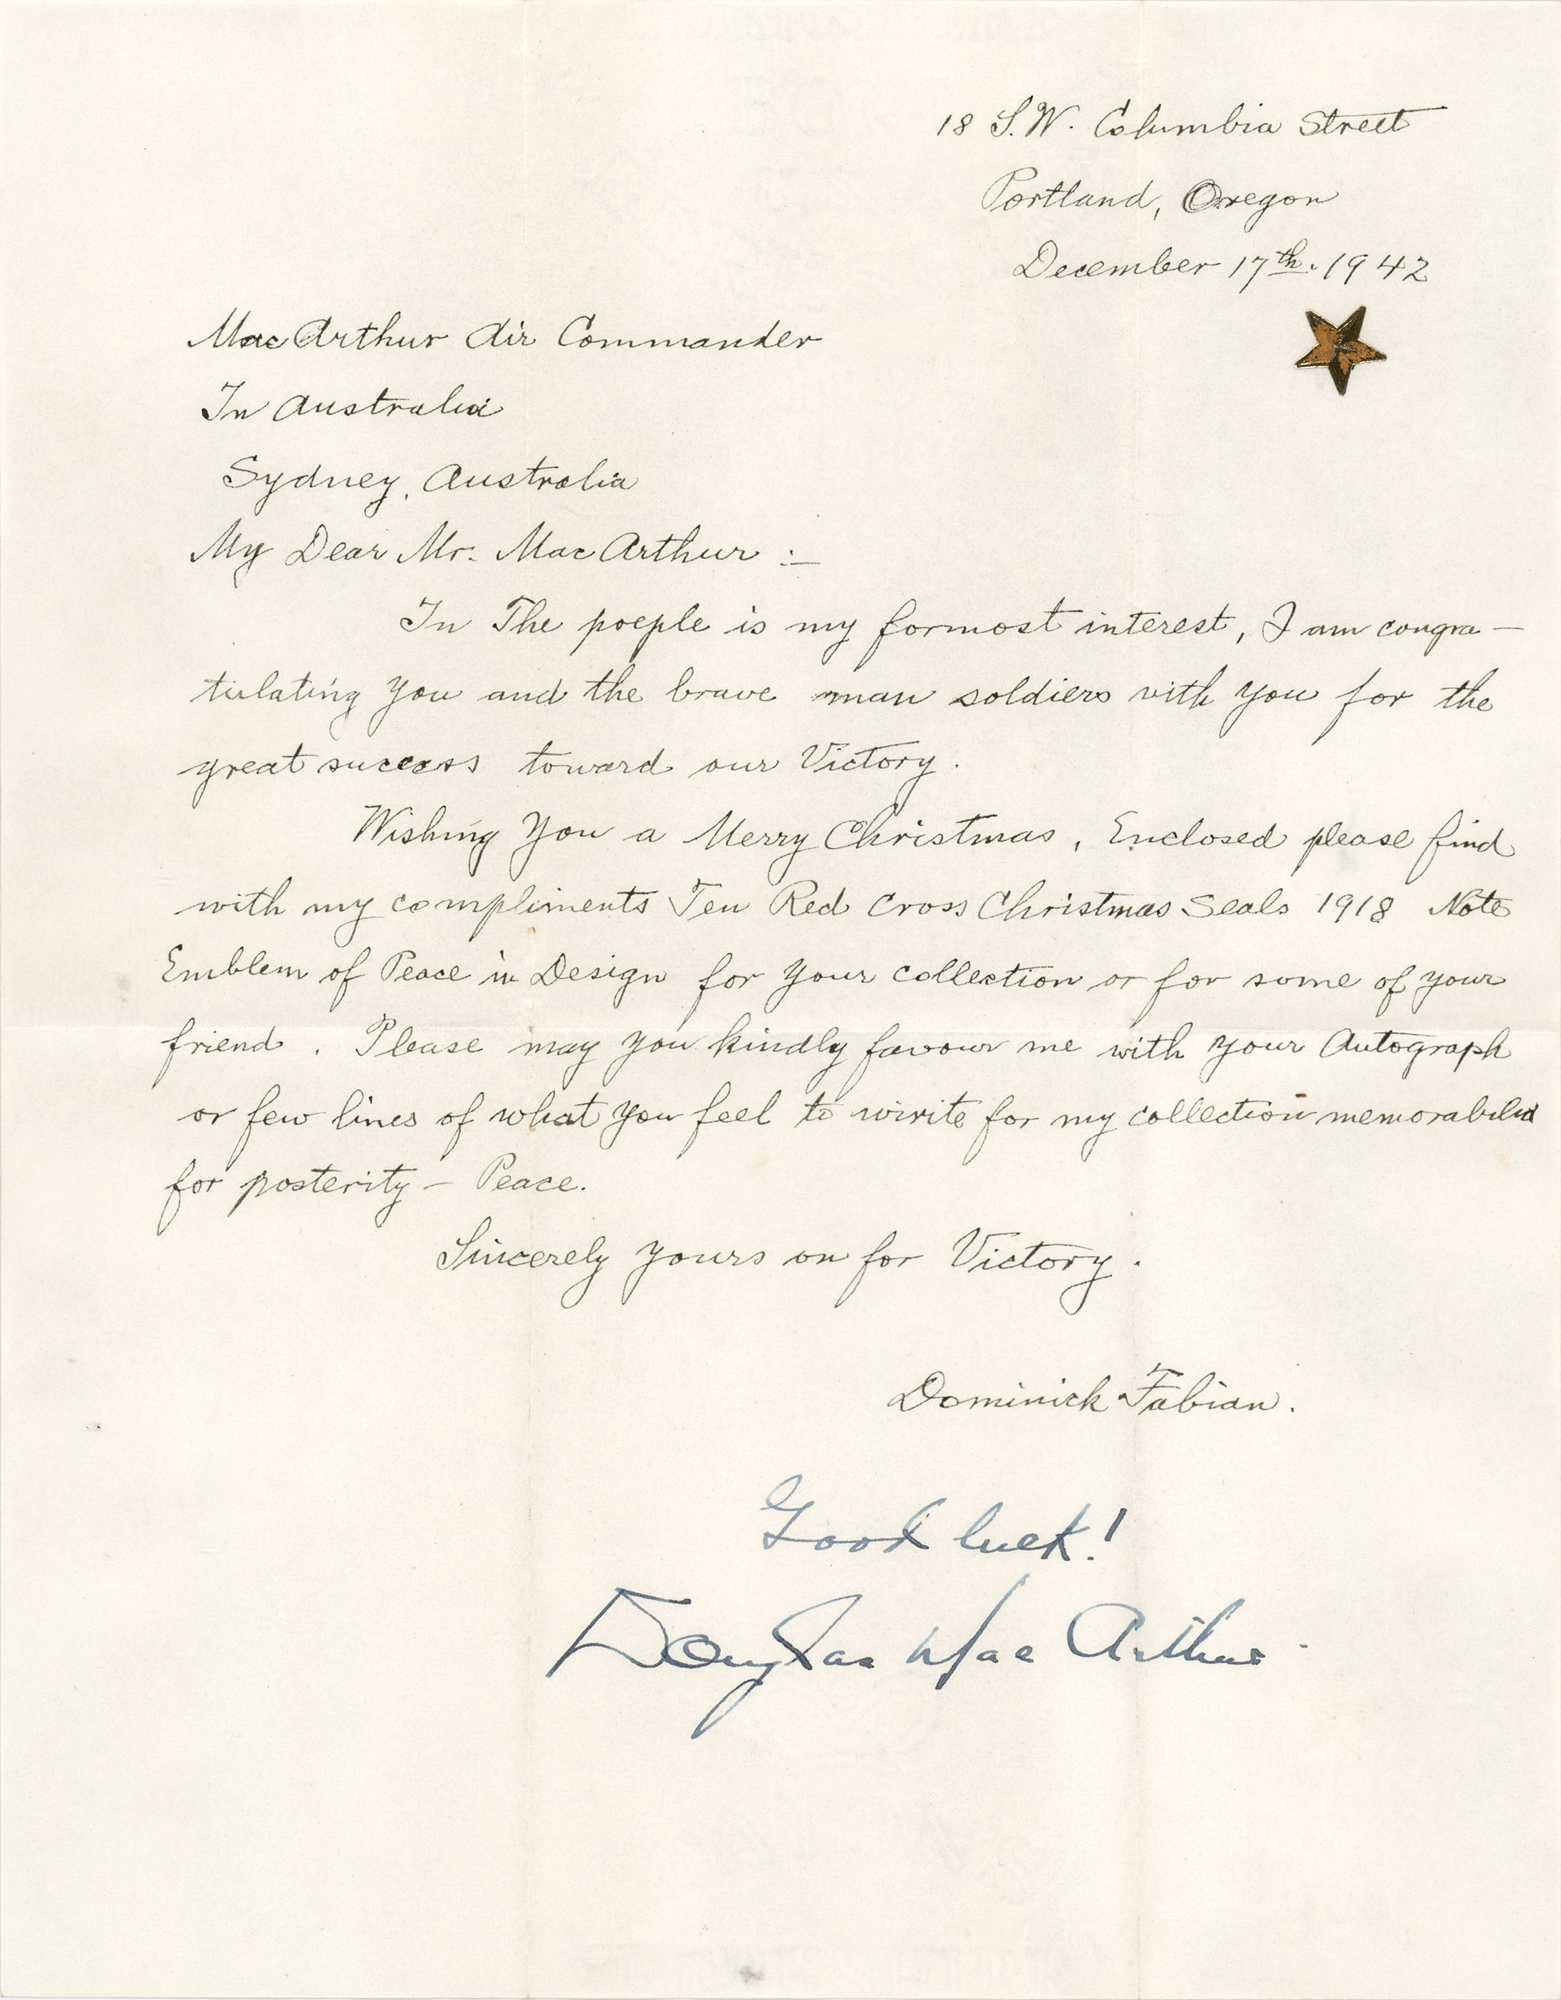 18 S.W. Columbia Street
Portland, Oregon
December 17th. 1942
Mac Arthur Air Commander
In Australia
Sydney, Australia
My Dear Mr. Mac Arthur :—
In The poeple is my formost interest, I am congra—
tulating you and the brave man soldiers vith you for the
great success toward our Victory.
Wishing you a Merry Christmas, Enclosed please find
with my compliments Ten Red Cross Christmas Seals 1918 Note
Emblem of Peace in Design for your collection or for some of your
friend. Please may you kindly favour me with your Autograph
or few lines of what you feel to wirite for my collection memorabilia
for posterity — Peace.
Sincerely yours on for Victory.
Dominick Fabian.
Good luck!
Douglas MacArthur